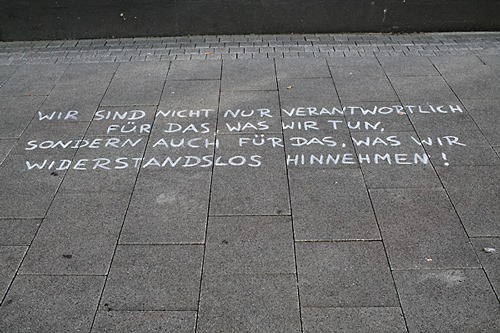 WIR SIND NICHT NUR VERANTWORTLICH
FÜR DAS, WAS WIR TUN,
SONDERN AUCH FÜR DAS, WAS WIR
WIDERSTANDSLOS HINNEHMEN!